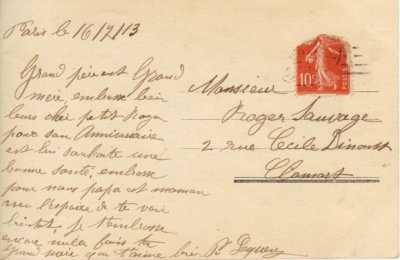 Paris le 16/7/13
Grand père et Grand
mère embrasse bien
leurs cher petit Roger
pour son Anniversaire
et lui souhaite une
bonne santé, embrasse
pour nous papa et maman
avec l'espoir de te voir
bientôt, je t'embrasse
encore mille fois ta
Grand mère qui t'aime bien
Monsieur
Roger Sauvage
2 rue Cécile Dinant
Clamart
10c
POSTES